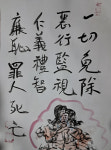 一切免除
惡行監視
仁義禮智
廉恥罪人死亡